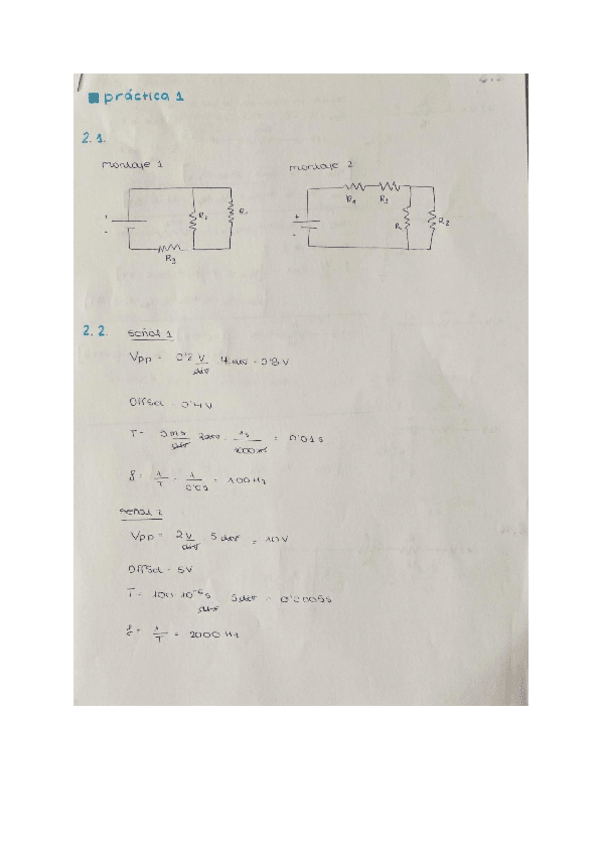 práctica 1
2.1.
montaje 1
montaje 2
+
-
R2
R1
R3
+
-
R4
R3
R1
R2
2.2.
señal 1
Vpp = 0'2 V/div 4 div = 0'8 V
Offset = 0'4 V
T = 5 ms/div 2 div · 1s/1000 ms = 0'01 s
f = 1/T = 1/0'01 = 100 Hz
señal 2
Vpp = 2 V/div · 5 div = 10 V
Offset = 5V
T = 100·10⁻⁶ s/div 5 div = 0'0005 s
f = 1/T = 2000 Hz